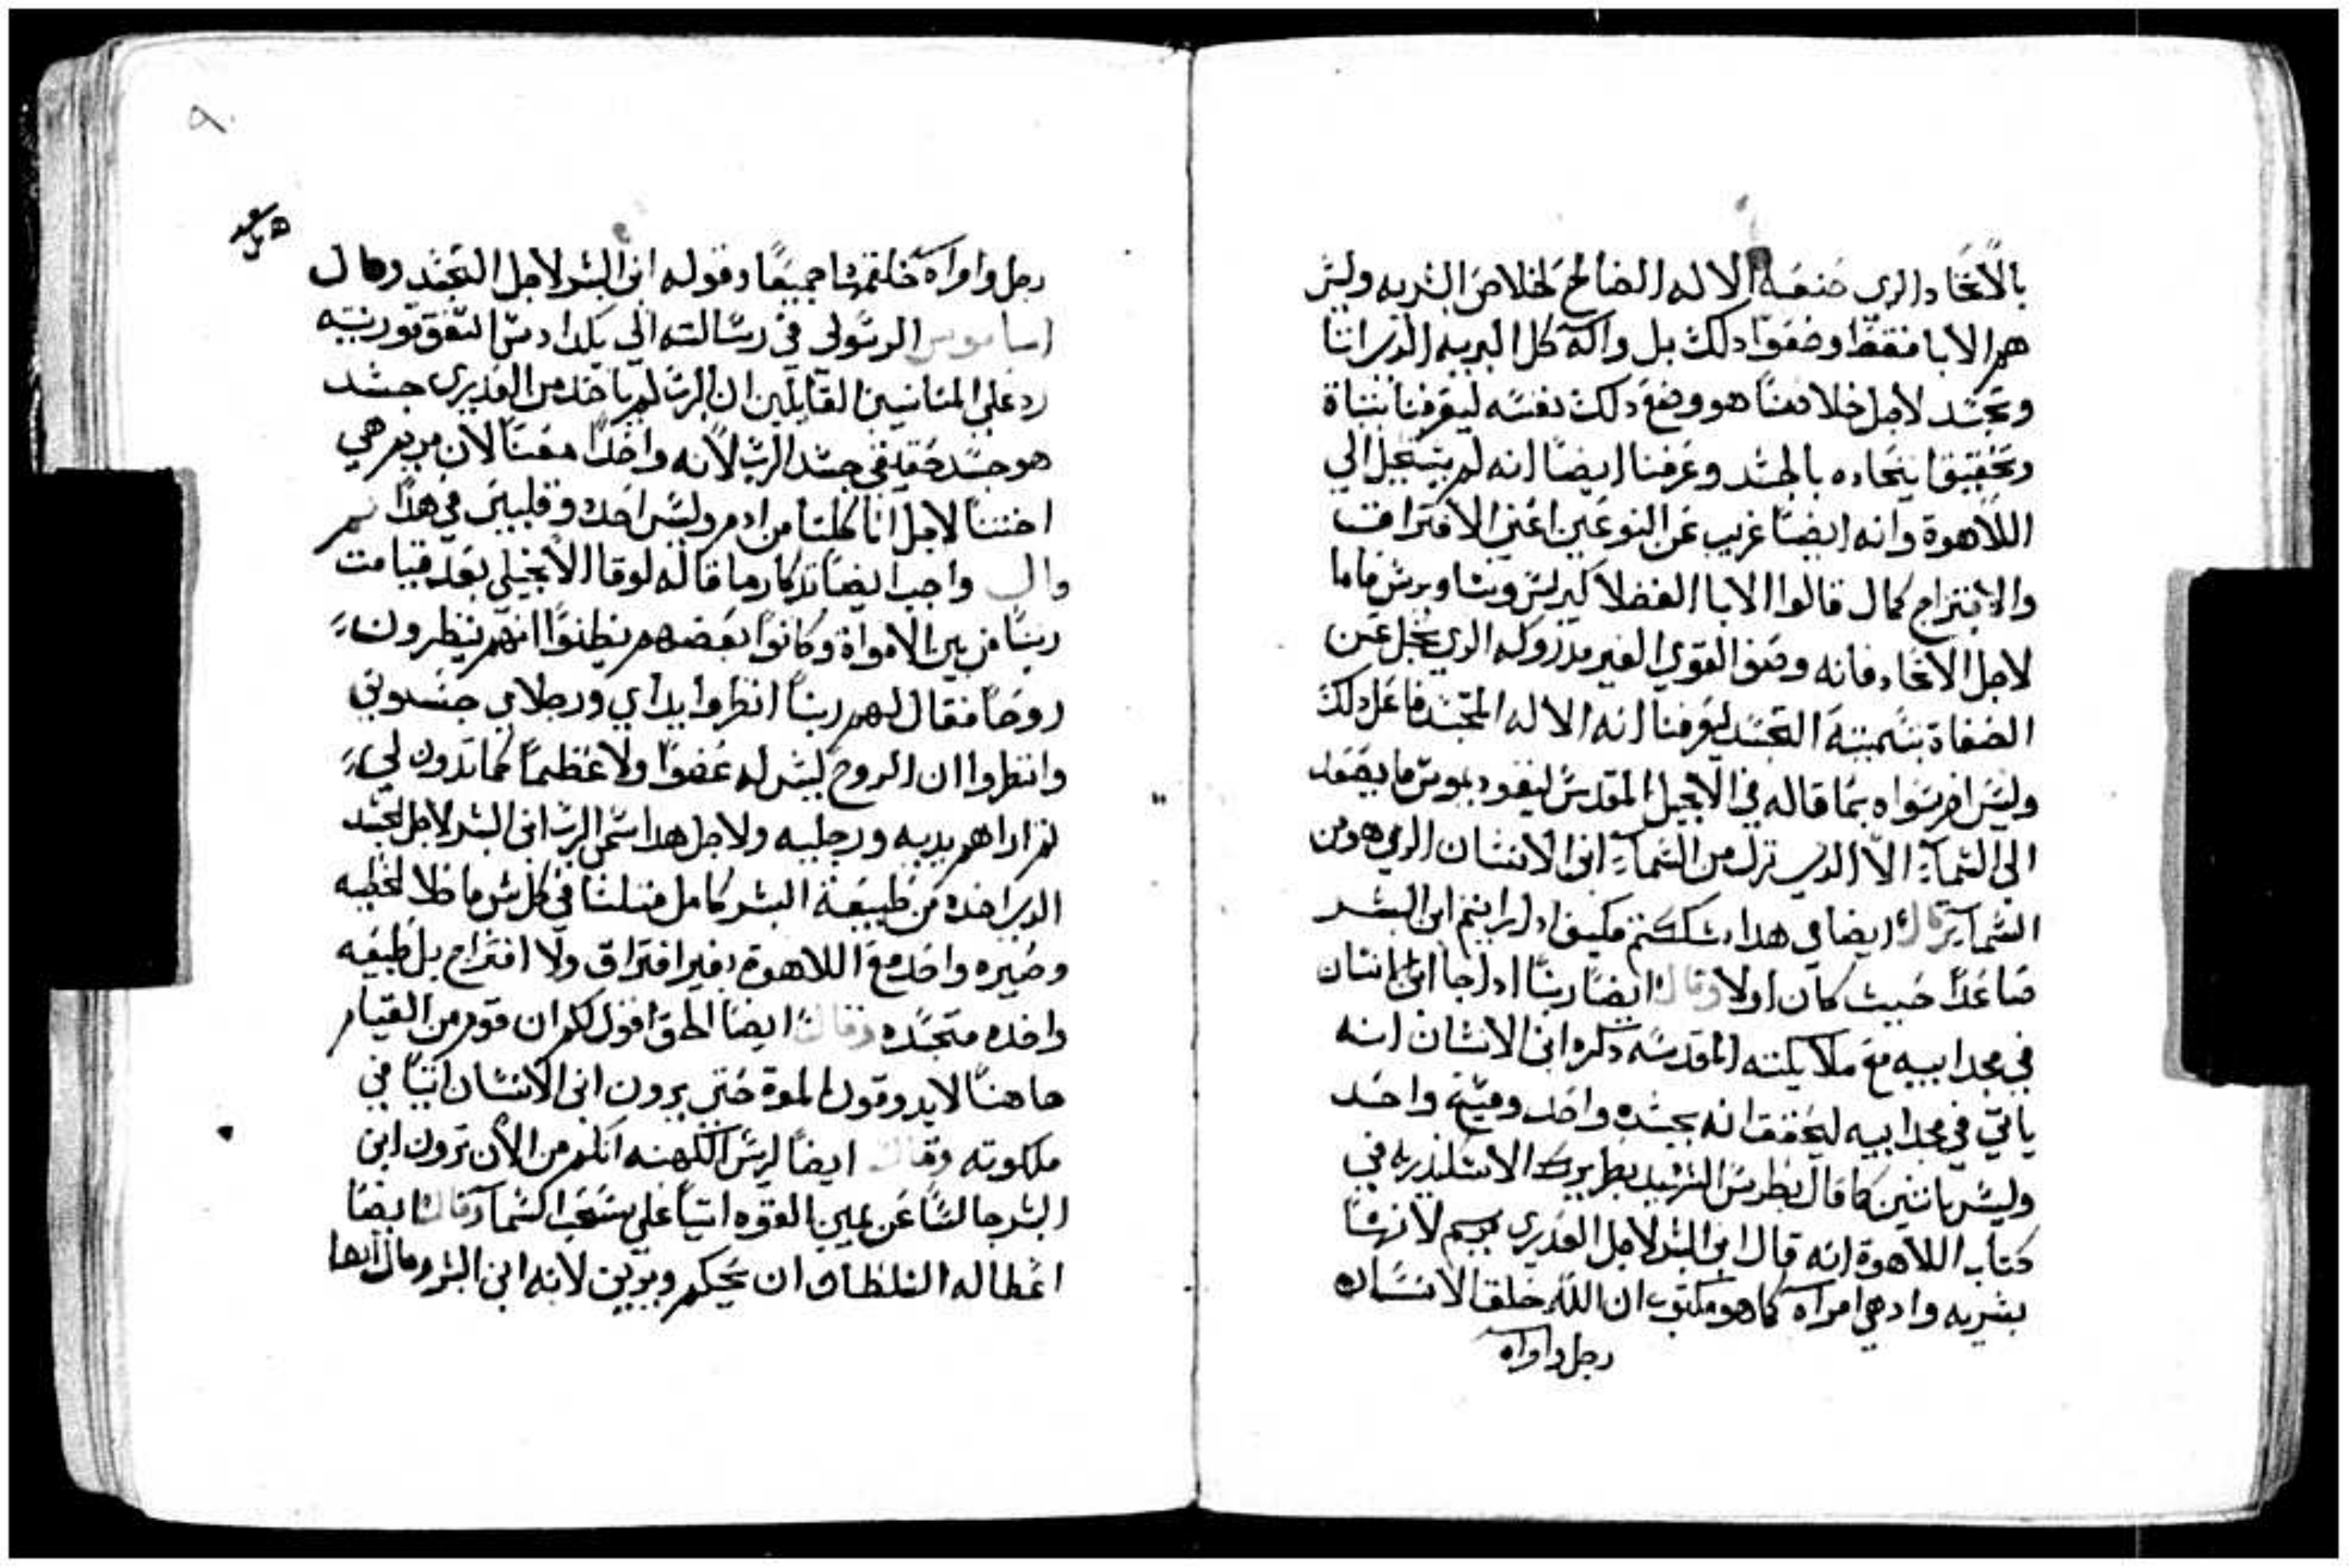 بالاتحاد الدي صنعه الاله الصالح لخلاص البشريه وليس
هم الابا فقط وضعوا دلك بل واله كل البريه الدي اتا
وتجسد لاجل خلاصنا هو وضع دلك بنفسه ليعرفنا بثباة
وتحقيق اتحاده بالجسد وعرفنا ايضا انه لم يستحيل الي
اللاهوة وانه ايضا غريب عن النوعين اعني الافتراق
والامتزاج كمال قالوا الابا الفضلا كيرلس وساويرس فاما
لاجل الاتحاد فانه وضع القوي الغير مدروكه الدي يجل عن
الصفاة بتسمية التجسد ليعرفنا انه الاله المتجسد فاعل دلك
وليس امر سواه بما قاله في الانجيل المقدس ليقوديموس ما يصعد
الي السما الا الدي نزل من السما ابن الانسان الدي هو من
السما وقال ايضا في هدا شككتم فكيف ادا رايتم ابن البشر
صاعدا حيث كان اولا وقال ايضا ربنا ادا جا ابن انسان
في مجد ابيه مع ملايكته المقدسه دكره ابن الانسان انه
ياتي في مجد ابيه ليحقق انه بجسده واحد ومسيح واحد
وليس باتنين كما قال بطرس الشهيد بطريرك الاسكندريه في
كتاب اللاهوة انه قال ابن البشر لاجل العدري مريم لانها
بشريه واد هي امراه كما هو مكتوب ان الله خلق الانسان
رجل وامراه
رجل وامراه خلقهما جميعا وقوله ابن البشر لاجل التجسد وقال
الرسولي في رسالته الي بلاد
رد علي المنانيين القايلين ان الرب لم ياخد من العدري جسد
هو جسد حقيقي جسد الرب لانه واحدا معنا لان مريم هي
اختنا لاجل اننا كلنا من ادم وليس احد في هدا ثم
وال واجب ايضا تدكار ما قاله لوقا الانجيلي بعد قيامت
ربنا من بين الامواة وكانوا بعضهم يظنوا انهم ينظرون
روحا فقال لهم ربنا انظروا يداي ورجلاي جسوني
وانظروا ان الروح ليس له عضوا ولا عظما كما ترون لي
ثم اراهم يديه ورجليه ولاجل هدا اسمي الرب ابن البشر لاجل الجسد
الدي اخده من طبيعة البشر كامل مثلنا في كل شي ما خلا الخطيه
وصيره واحد مع اللاهوة بغير افتراق ولا امتزاج بل طبيعه
واحده متجسده وقال ايضا الحق اقول لكم ان قوم من القيام
هاهنا لا يدوقون الموة حتي يرون ابن الانسان اتيا في
ملكوته وقال ايضا لريس الكهنه انكم من الان ترون ابن
البشر جالسا عن يمين القوه اتيا علي سحب السما وقال ايضا
اعطا له السلطان ان يحكم ويدين لانه ابن البشر وقال ايضا